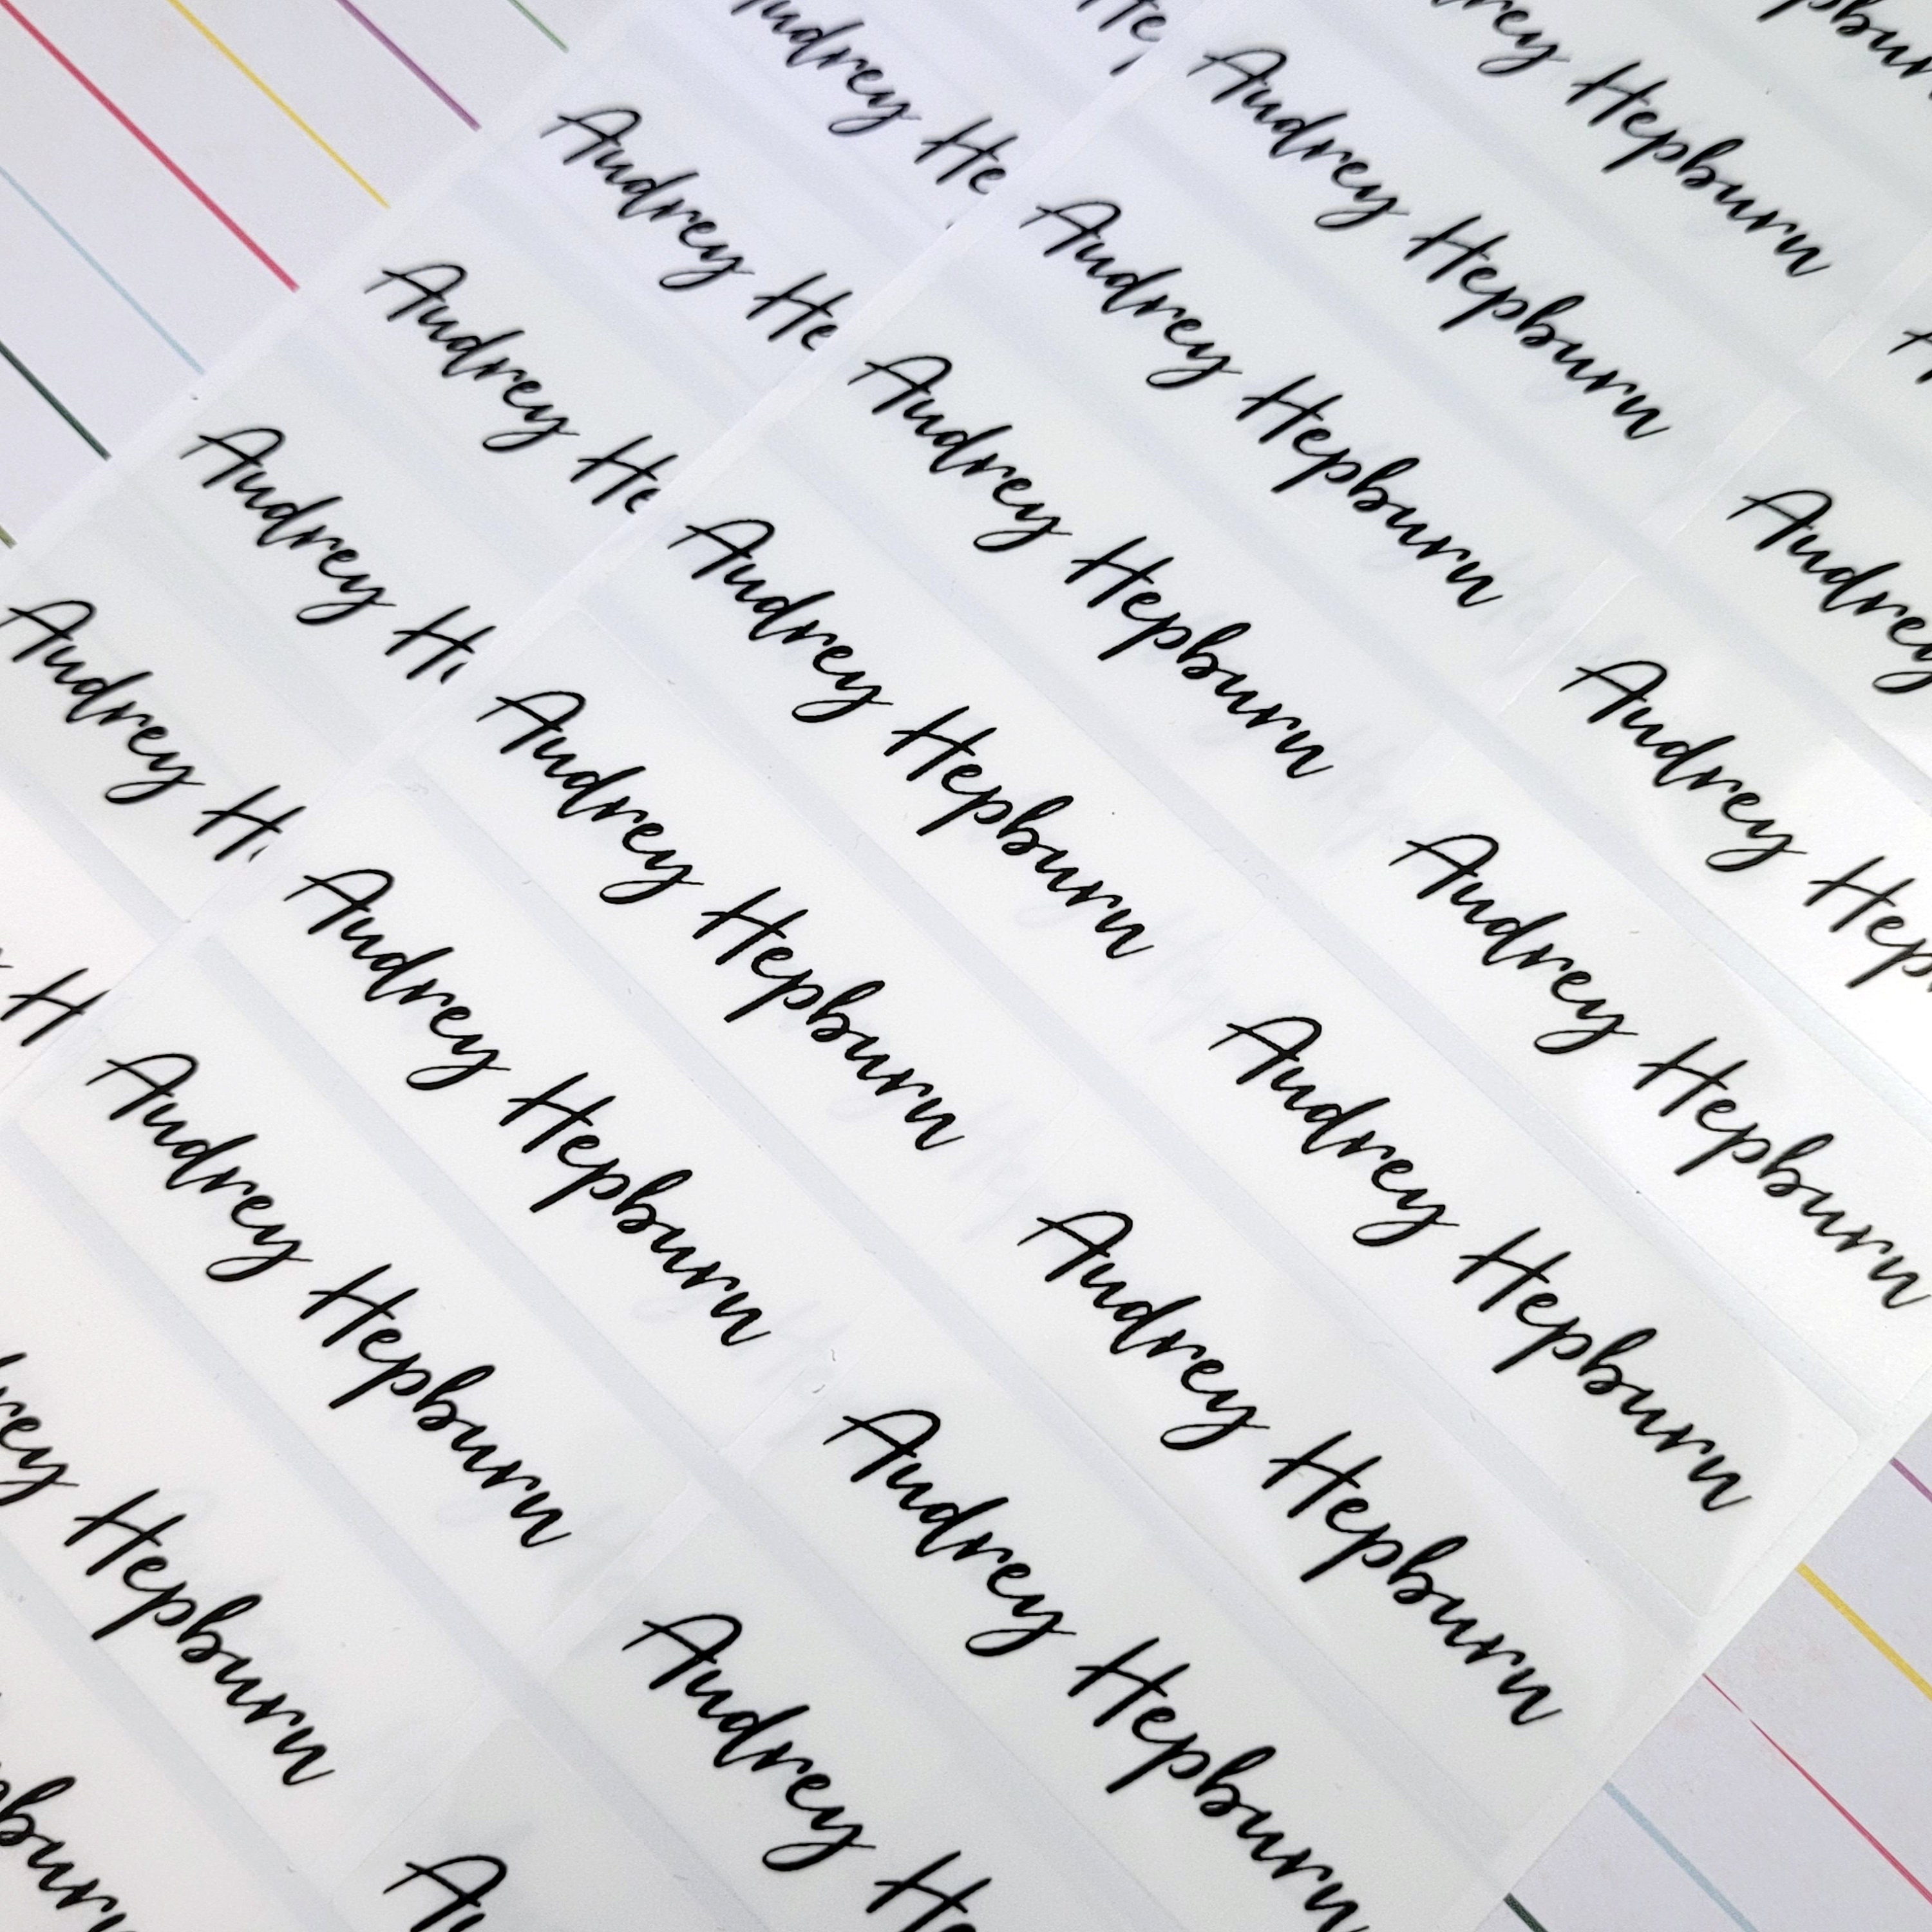 Audrey He
Audrey He
Audrey He
Audrey H
Audrey H
H
Audrey Hepburn
Audrey Hepburn
Audrey Hepburn
Audrey Hepburn
Audrey Hepburn
Audrey Hepburn
Audrey Hepburn
Hepburn
Hepburn
Audrey
Audrey Hep
Audrey Hepburn
Audrey Hepburn
Audrey Hepburn
Audrey Hepburn
Audrey He